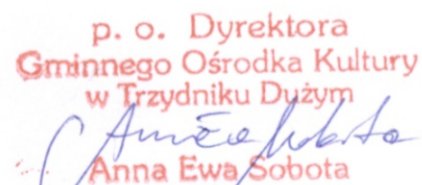 p. o. Dyrektora
Gminnego Ośrodka Kultury
w Trzydniku Dużym
Anna Ewa Sobota